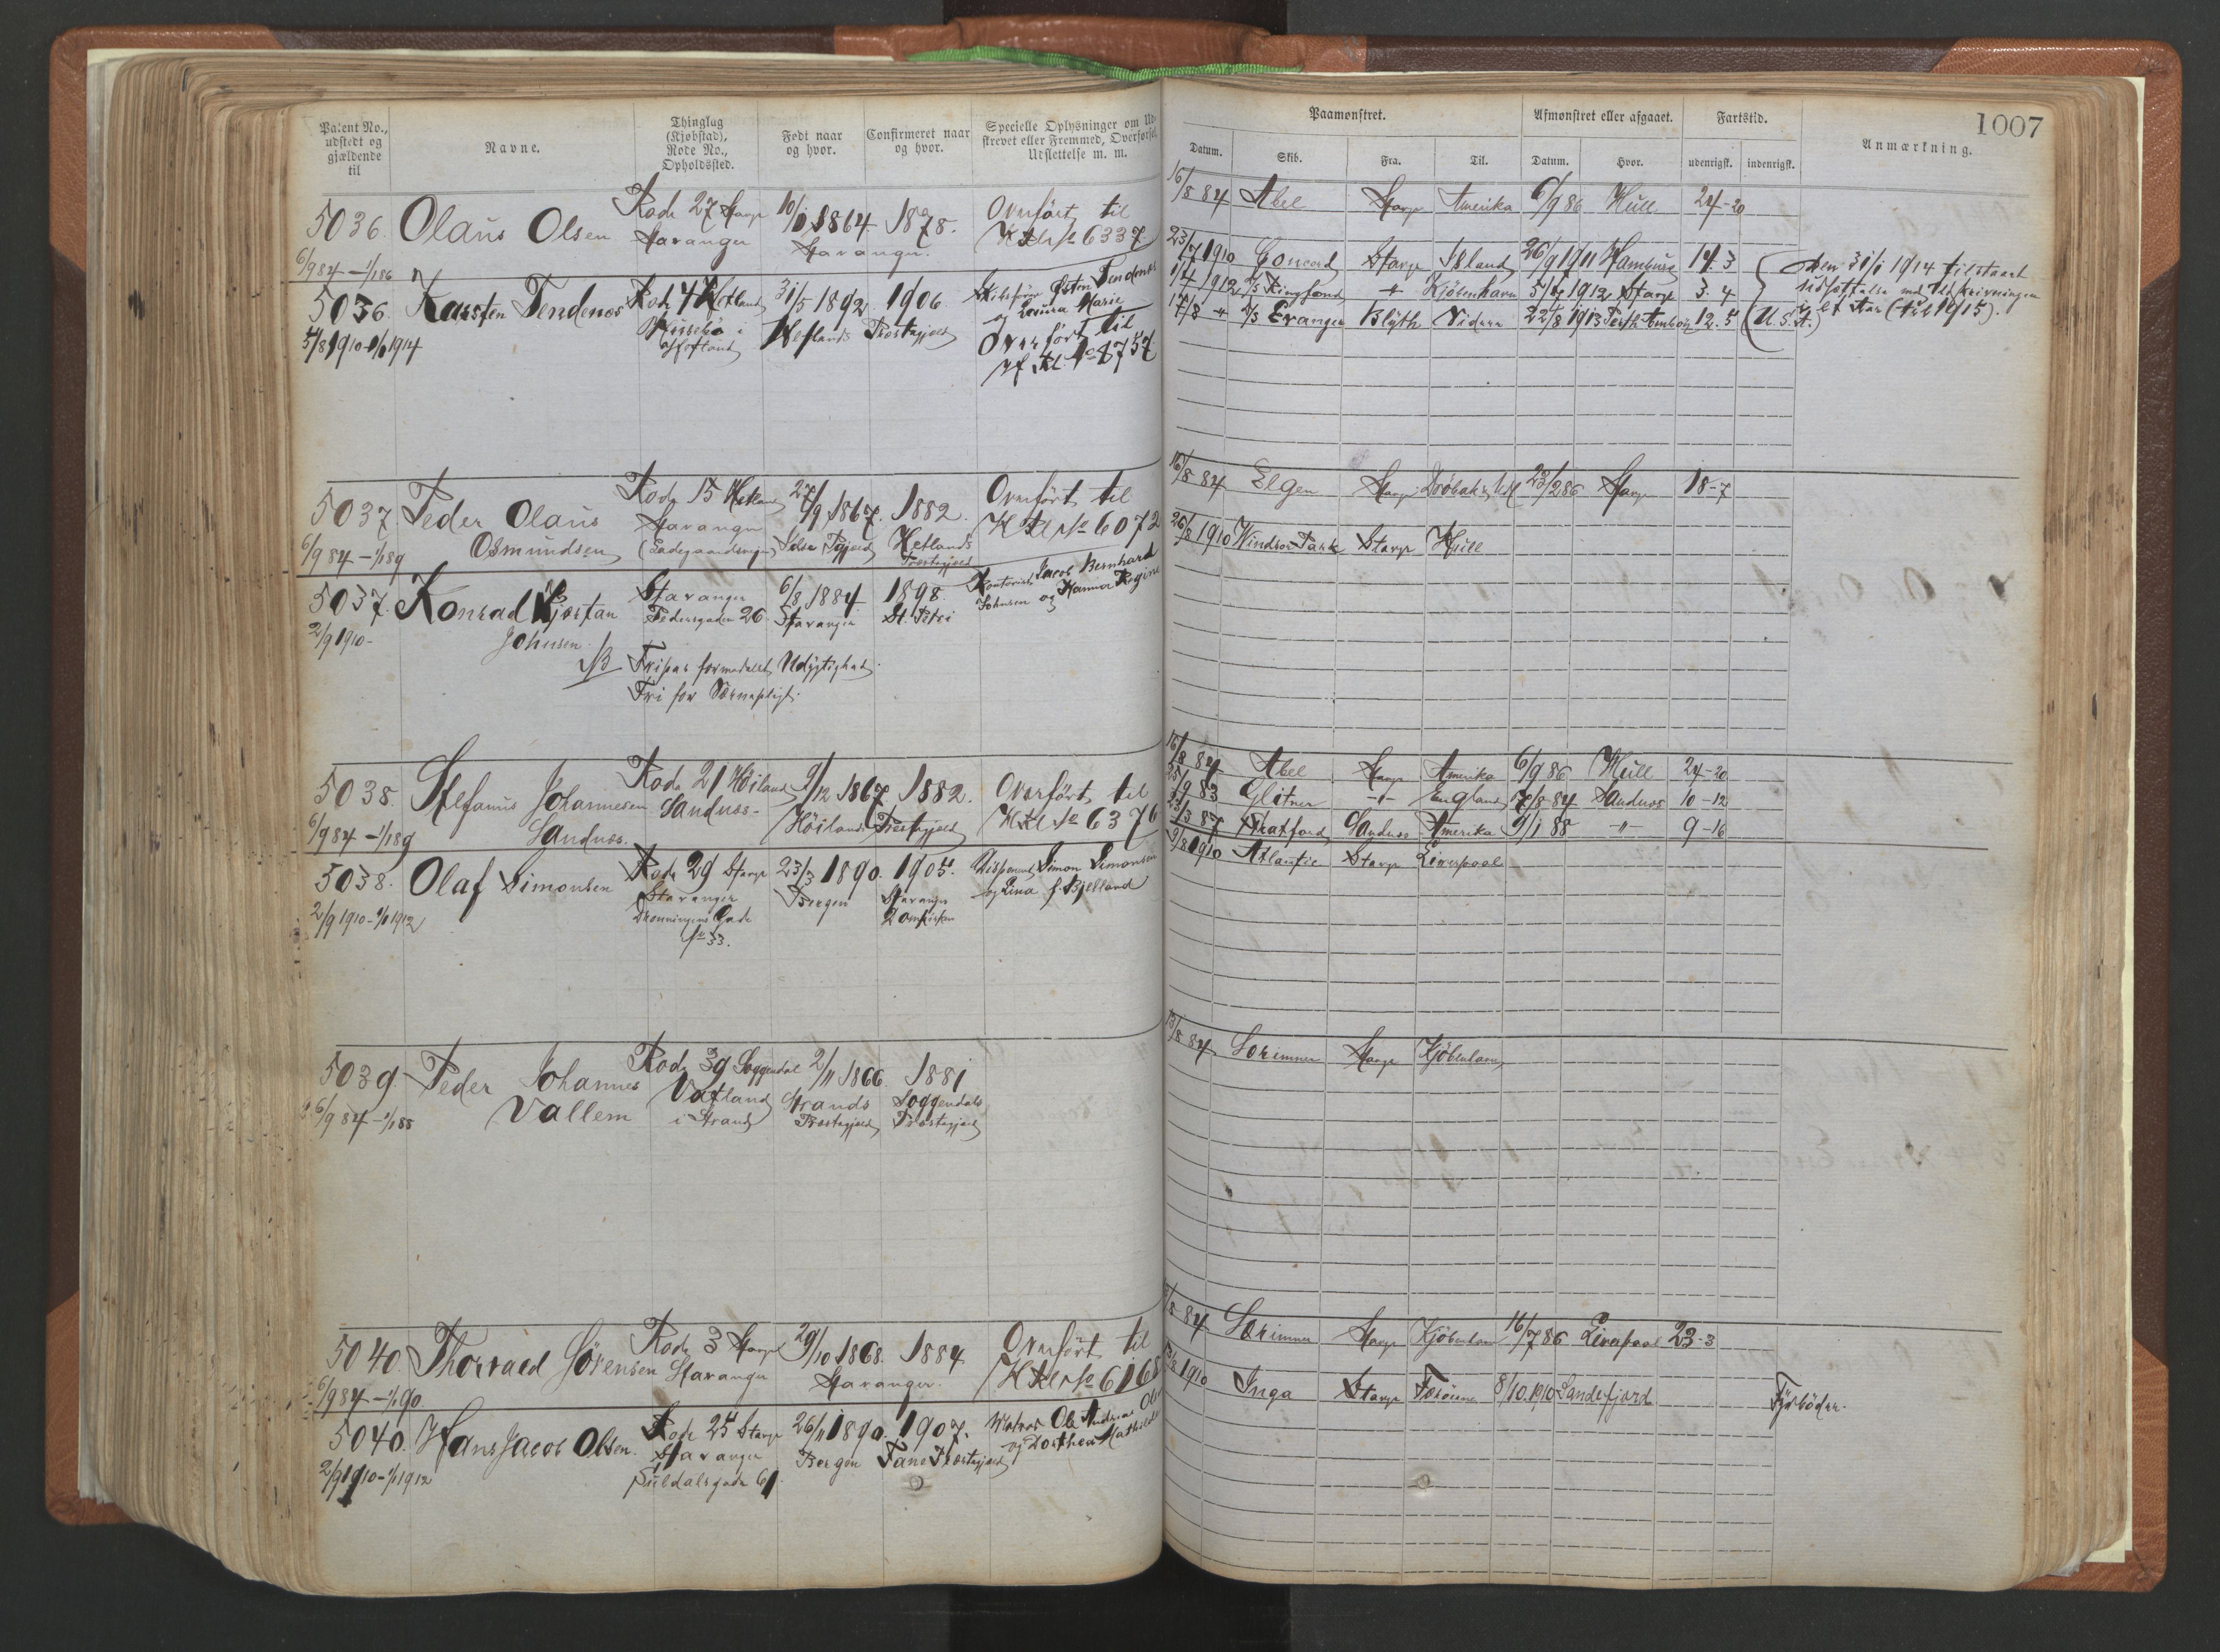 Patent No.,
udstedt og
gjældende
til
Navne.
Thinglag
(Kjøbstad),
Rode No.,
Opholdssted.
Født naar
og hvor.
Confirmeret naar
og hvor.
Specielle Oplysninger om Ud-
skrevet eller Fremmed, Overførsel,
Udslettelse m. m.
5036. Olaus Olsen
6/9 84 – 1/1 86
Rode 27 Stavgr
Stavanger
1864. 1878.
Stavanger.
Overført til
6337
5036. Karsten Tendenes
5/8 1910 – 1/1 1914
Rode 4 Hetland
i
Hetland
31/5 1892 1906
Hetlands Præstegjæld
og Laura Marie
Overført til
No 8757
5037. Peder Olaus
Osmundsen
6/9 84 – 1/1 89
Rode 15 Hetland
Stavanger
(Ladegaardsveien)
27/9 1867. 1882.
Hetlands
Præstegjæld
Overført til
6072
5037. Konrad Kjærstan
Johnsen.
2/9 1910 –
Stavanger
Pedersgaden 26
6/8 1884. 1898.
Stavanger St. Petri
Kontorist Jacob Bernhard
Johnsen og Hanna Regine
Fripas formedelst Udygtighed.
Fri for Værnepligt.
5038. Stefanus Johannesen
Sandnes.
6/9 84 – 1/1 89
Rode 21 Höiland
Sandnes
9/12 1867 1882.
Höilands Præstegjæld
Overført til
6376
5038. Olaf Simonsen
2/9 1910 – 1/1 1912
Rode 29 Stavgr
Stavanger
Dronningens Gade
No 33.
23/3 1890. 1905.
Bergen Stavanger
Domkirken
Disponent Simon Simonsen
og Lina f. Bjelland
5039. Peder Johannes
Vallem
6/9 84 – 1/1 88
Rode 39 Soggendal
Vatland
i Strand
2/11 1866. 1881
Strands Soggendals
Præstegjæld Præstegjæld
5040. Thorvald Sörensen
6/9 84 – 1/1 90
Rode 3 Stavgr
Stavanger
29/10 1868. 1884
Stavanger.
Overført til
6168
5040. Hans Jacob Olsen.
2/9 1910 – 1/1 1912
Rode 25 Stavgr
Stavanger
Suldalsgade 61
26/11 1890. 1907.
Bergen Fane Præstegjæld
Matros Ole Andreas Olsen
og Dorthea Mathilde
1007
Paamønstret.
Afmønstret eller afgaaet.
Fartstid.
Anmærkning.
Datum. Skib. Fra. Til. Datum. Hvor. udenrigsk. indenrigsk.
16/8 84 Abel Stavgr Amerika 6/9 86 Hull 24-20
23/7 1910 Concord Stavgr Island 26/9 1911 Hamburg 14. 3
1/4 1912 D/S Ringhorn " Kjöbenhavn 5/7 1912 Stavgr 3. 4
17/8 " D/S Evanger Blyth Vidare 22/8 1913 Perth Amboy 12. 5 (U. S. A.)
Den 31/1 1914 tilstaaet
udsættelse med Udskrivningen
i et Aar (til 1915).
16/8 84 Elgen Stavgr 23/2 86 Stavgr 18-7
26/8 1910 Windsor Park Stavgr Hull
16/8 84 Abel Stavgr Amerika 6/9 86 Hull 24-20
25/9 83 Glitner -"- England 7/8 84 Sandnes 10-12
23/3 87 Stratford Sandnes Amerika 9/1 88 -"- 9-16
9/8 1910 Atlantic Stavgr Liverpool
13/8 84 Særimner Stavgr Kjöbenhavn
84 Særimner Stavgr Kjöbenhavn 16/7 86 Liverpool 23-3
1910 Inga Stavgr Færöerne 8/10 1910 Sandefjord
Fyrböder.